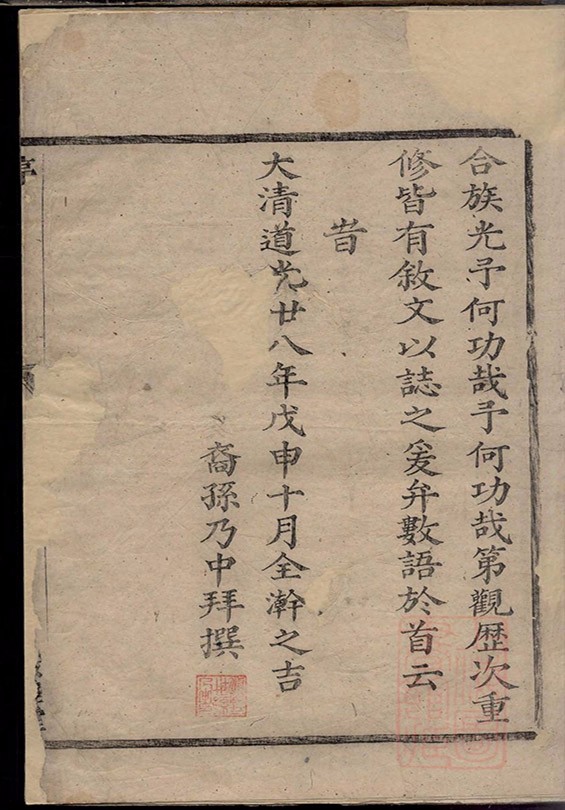 合族光予何功哉予何功哉第觀歷次重
修皆有敘文以誌之爰弁數語於首云
旹
大清道光廿八年戊申十月全澣之吉
裔孫乃中拜撰